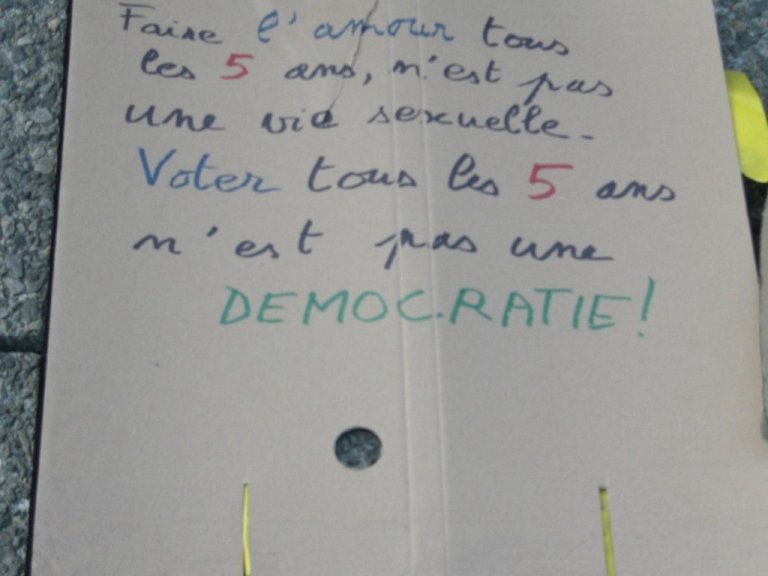 Faire l'amour tous
les 5 ans, n'est pas
une vie sexuelle.
Voter tous les 5 ans
n'est pas une
DEMOCRATIE!